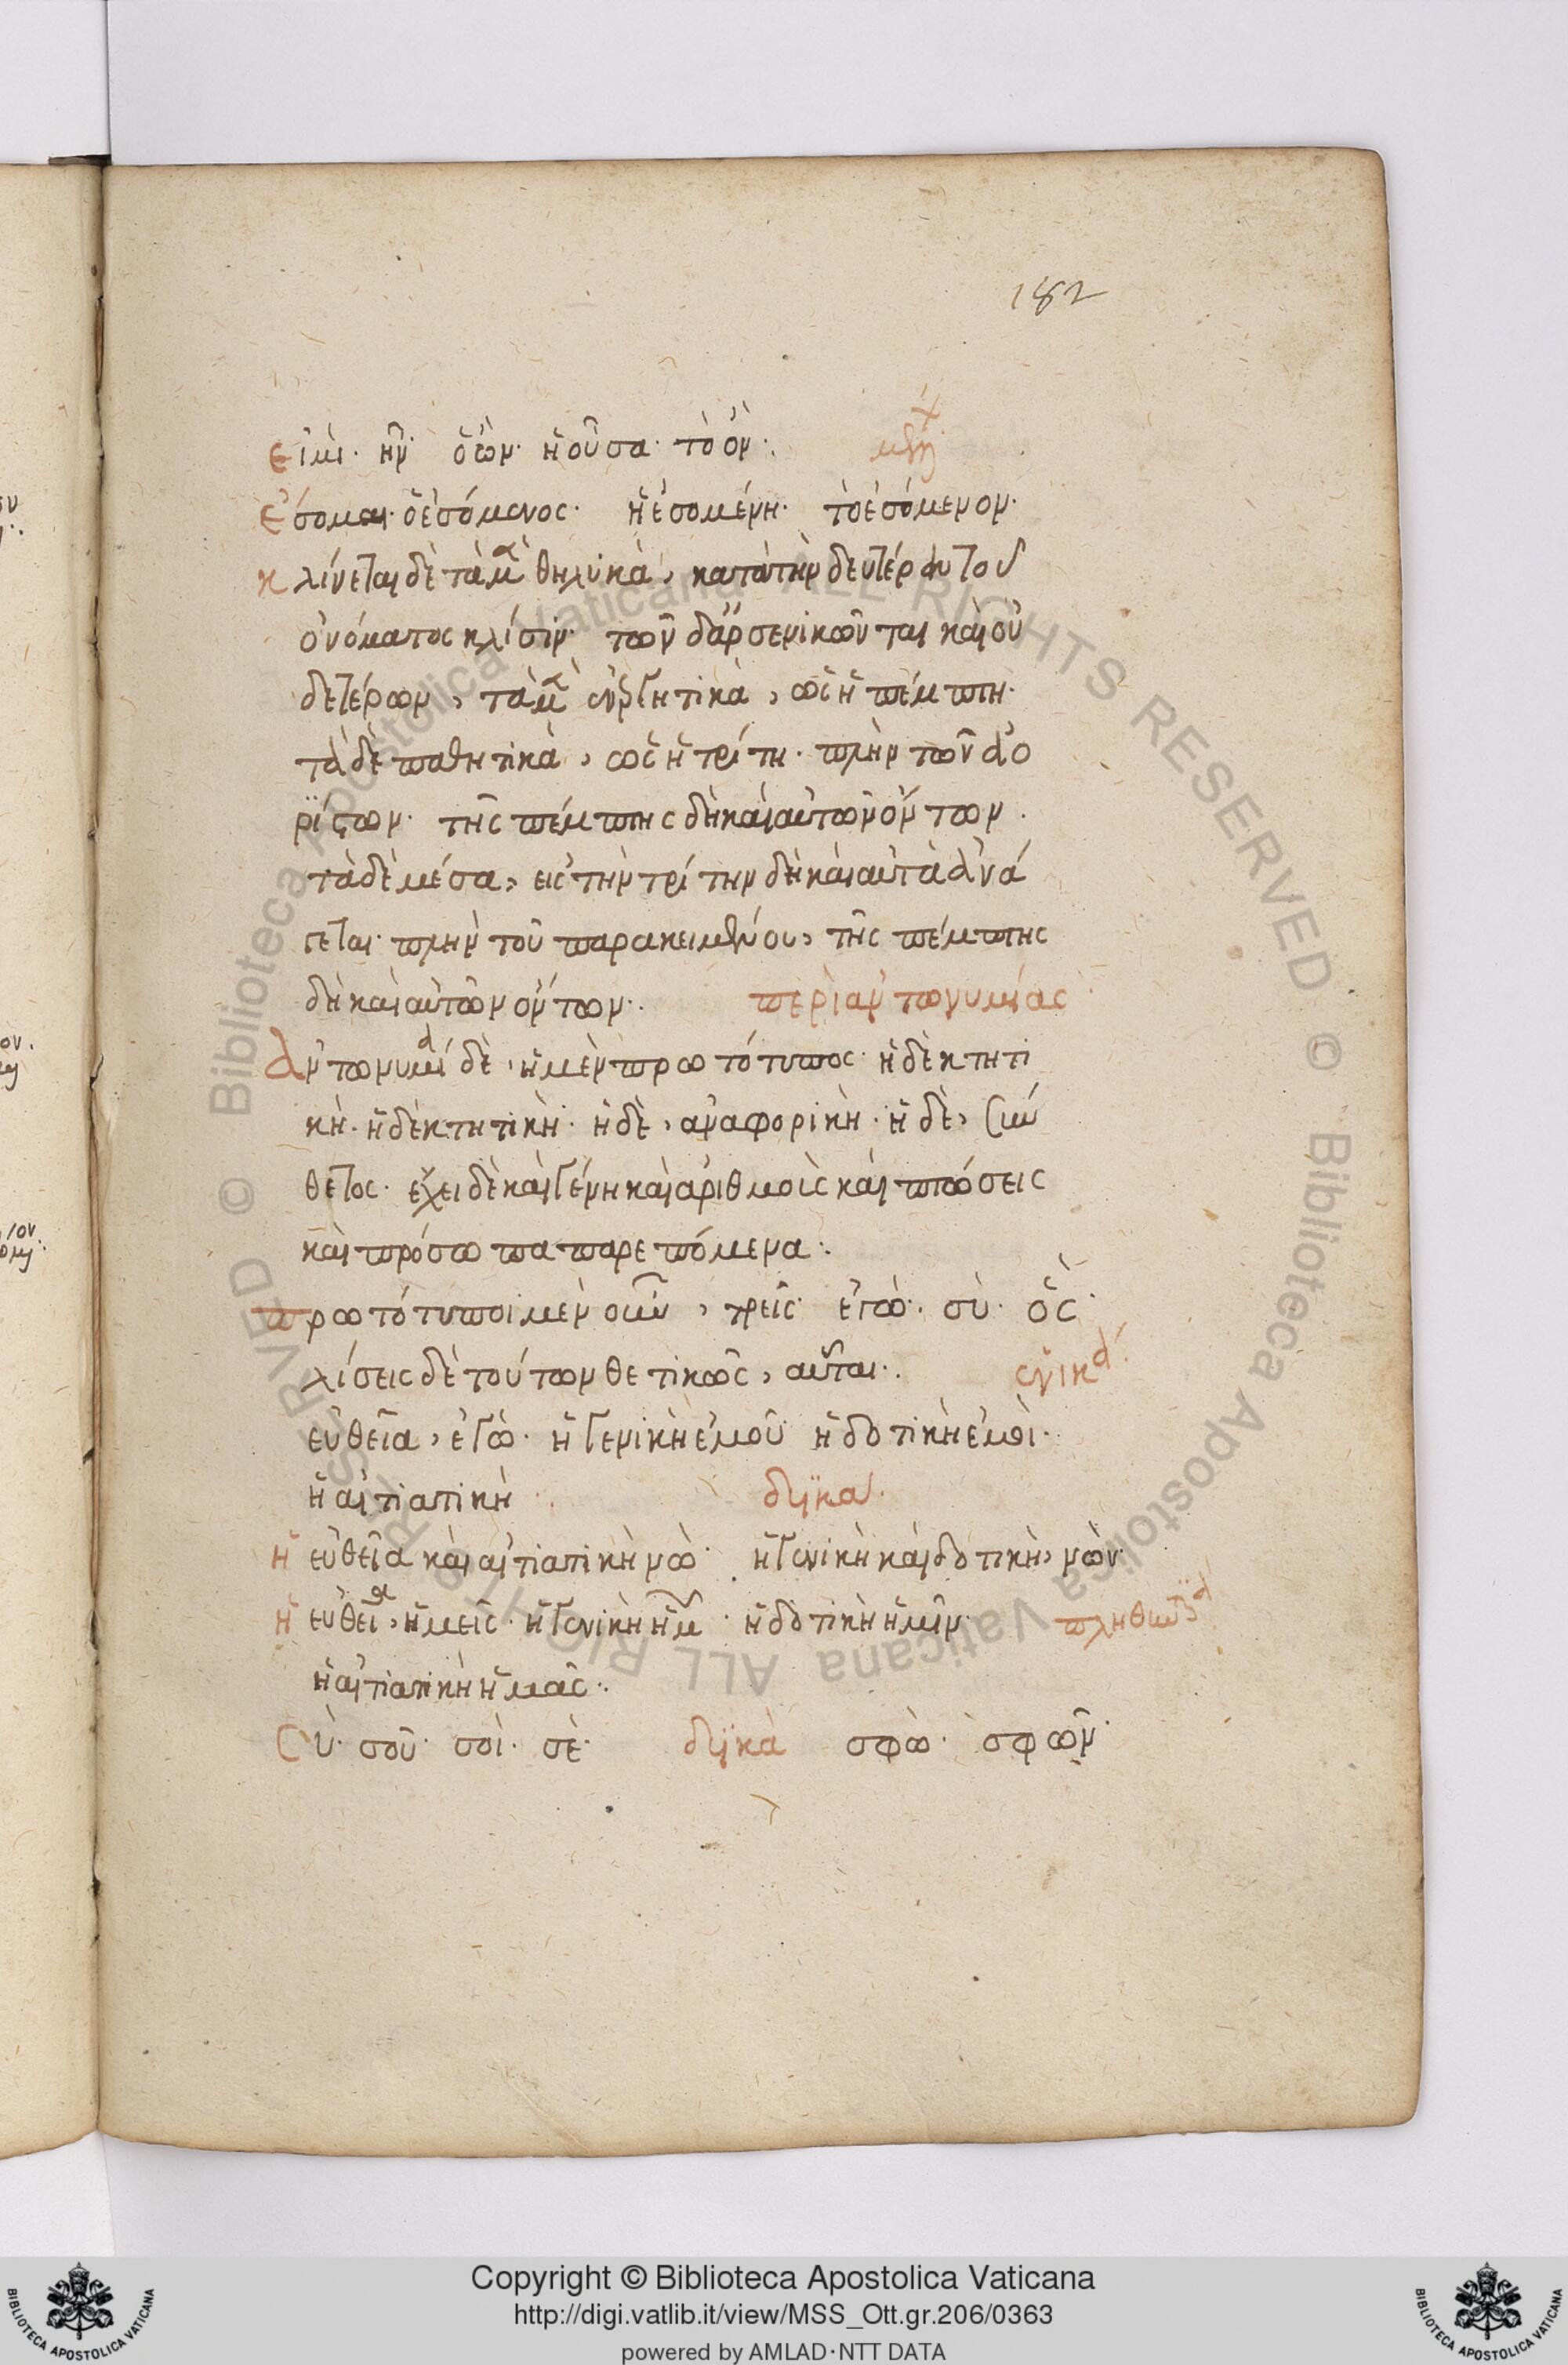 182
εἰμὶ· ἦν· ὁ ὢν· ἡ οὖσα· τὸ ὄν·
ἔσομαι· ὁ ἐσόμενος· ἡ ἐσομένη· τὸ ἐσόμενον·
κλίνεται δὲ τὰ μὲν θηλυκὰ, κατὰ τὴν δευτέραν τοῦ
ὀνόματος κλίσιν· τῶν δ' ἀρσενικῶν τε καὶ οὐ
δετέρων, τὰ μὲν ἐνεργητικὰ, ὡς ἡ πέμπτη·
τὰ δὲ παθητικὰ, ὡς ἡ τρίτη· πλὴν τῶν ἀο
ρίστων· τῆς πέμπτης δὴ καὶ αὐτῶν ὄντων·
τὰ δὲ μέσα, εἰς τὴν τρίτην δὴ καὶ αὐτὰ ἀνά
γεται· πλὴν τοῦ παρακειμένου, τῆς πέμπτης
δὴ καὶ αὐτῶν ὄντων·. περὶ ἀντωνυμίας
ἀντωνυμία δὲ, ἡ μὲν πρωτότυπος· ἡ δὲ κτητι
κὴ· ἡ δὲ κτητικὴ· ἡ δὲ, ἀναφορικὴ· ἡ δὲ, σύν
θετος· ἔχει δὲ καὶ γένη καὶ ἀριθμοὺς καὶ πτώσεις
καὶ πρόσωπα παρεπόμενα·.
πρωτότυποι μὲν οὖν, τρεῖς· ἐγὼ· σὺ· ὃς·
λίσεις δὲ τούτων θετικῶς, αὗται·. ἑνικὰ·
εὐθεῖα, ἐγὼ· ἡ γενικὴ ἐμοῦ ἡ δοτικὴ ἐμοὶ·
ἡ αἰτιατικὴ ·. δυϊκὰ·
ἡ εὐθεῖα καὶ αἰτιατικὴ νὼ· ἡ γενικὴ καὶ δοτικὴ, νῶν·
ἡ εὐθεῖα, ἡμεῖς· ἡ γενικὴ ἡμῶν· ἡ δοτικὴ ἡμῖν· πληθυντικὰ
ἡ αἰτιατικὴ ἡμᾶς·.
σὺ· σοῦ· σοὶ· σὲ· δυϊκὰ σφὼ· σφῶν·
Copyright © Biblioteca Apostolica Vaticana
http://digi.vatlib.it/view/MSS_Ott.gr.206/0363
powered by AMLAD·NTT DATA
BIBLIOTECA APOSTOLICA VATICANA
BIBLIOTECA APOSTOLICA VATICANA
© Biblioteca Apostolica Vaticana ALL RIGHTS RESERVED
© Biblioteca Apostolica Vaticana ALL RIGHTS RESERVED